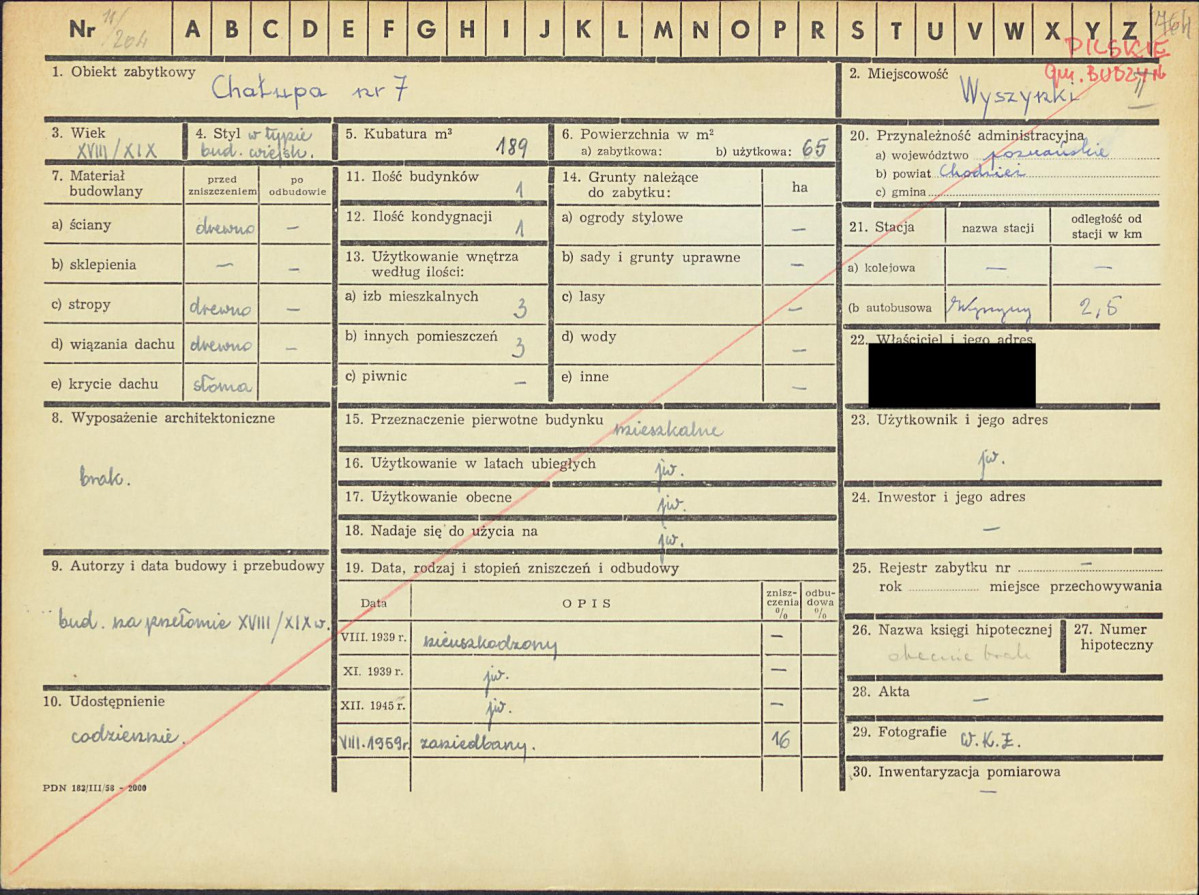 Nr 11/204 A B C D E F G H I J K L M N O P R S T U V W X Y Z 764
PILSKIE
gm. BUDZYŃ
1. Obiekt zabytkowy
Chałupa nr 7
2. Miejscowość
Wyszynki
3. Wiek
XVIII/XIX
4. Styl w typie
bud. wiejsk.
5. Kubatura m³
189
6. Powierzchnia w m²
a) zabytkowa: b) użytkowa: 65
7. Materiał budowlany
przed zniszczeniem
po odbudowie
a) ściany drewno —
b) sklepienia — —
c) stropy drewno —
d) wiązania dachu drewno —
e) krycie dachu słoma
8. Wyposażenie architektoniczne
brak.
9. Autorzy i data budowy i przebudowy
bud. na przełomie XVIII/XIX w.
10. Udostępnienie
codziennie.
PDN 183/III/58 - 2000
11. Ilość budynków
1
12. Ilość kondygnacji
1
13. Użytkowanie wnętrza
według ilości:
a) izb mieszkalnych 3
b) innych pomieszczeń 3
c) piwnic —
14. Grunty należące
do zabytku:
ha
a) ogrody stylowe —
b) sady i grunty uprawne —
c) lasy —
d) wody —
e) inne —
15. Przeznaczenie pierwotne budynku mieszkalne
16. Użytkowanie w latach ubiegłych jw.
17. Użytkowanie obecne jw.
18. Nadaje się do użycia na jw.
19. Data, rodzaj i stopień zniszczeń i odbudowy
Data
OPIS
znisz-
czenia
%
odbu-
dowa
%
VIII. 1939 r. nieuszkodzony —
XI. 1939 r. jw. —
XII. 1945 r. jw. —
VIII. 1959 r. zaniedbany. 16
20. Przynależność administracyjna
a) województwo poznańskie
b) powiat Chodzież
c) gmina
21. Stacja
nazwa stacji
odległość od
stacji w km
a) kolejowa — —
(b autobusowa Wyszyny 2,5
22. Właściciel i jego adres
23. Użytkownik i jego adres
jw.
24. Inwestor i jego adres
—
25. Rejestr zabytku nr —
rok miejsce przechowywania
26. Nazwa księgi hipotecznej
obecnie brak
27. Numer
hipoteczny
28. Akta
—
29. Fotografie W.K.Z.
30. Inwentaryzacja pomiarowa
—